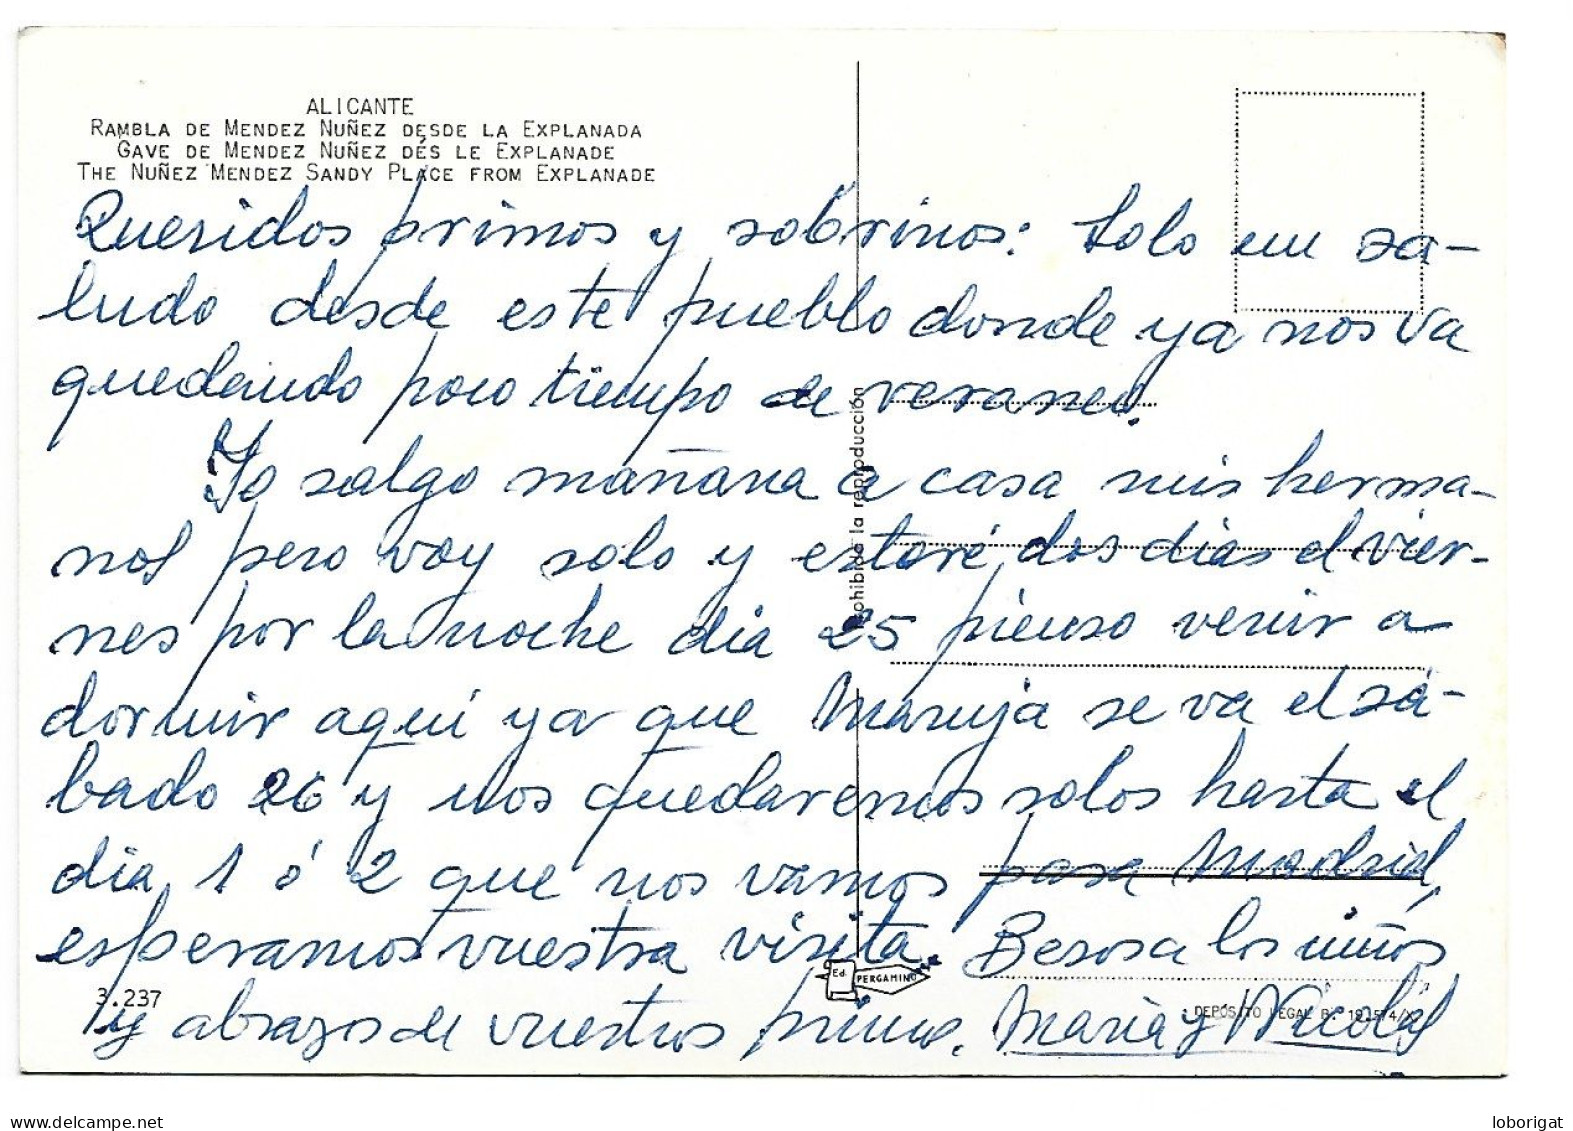 ALICANTE
RAMBLA DE MENDEZ NUÑEZ DESDE LA EXPLANADA
GAVE DE MENDEZ NUÑEZ DÉS LE EXPLANADE
THE NUÑEZ MENDEZ SANDY PLACE FROM EXPLANADE
Queridos primos y sobrinos: Solo un sa-
ludo desde este pueblo donde ya nos va
quedando poco tiempo de veraneo.
Yo salgo mañana a casa mis herma-
nos pero voy solo y estaré dos dias el vier-
nes por la noche dia 25 pienso venir a
dormir aquí ya que Maruja se va el sá-
bado 26 y nos quedaremos solos hasta el
dia, 1 ó 2 que nos vamos para Madrid,
esperamos vuestra visita. Besos a los niños
y abrazos de vuestros primos. Maria y Nicolás
Prohibida la reproducción
Ed. PERGAMINO
3.237
DEPÓSITO LEGAL B.
www.delcampe.net
loborigat